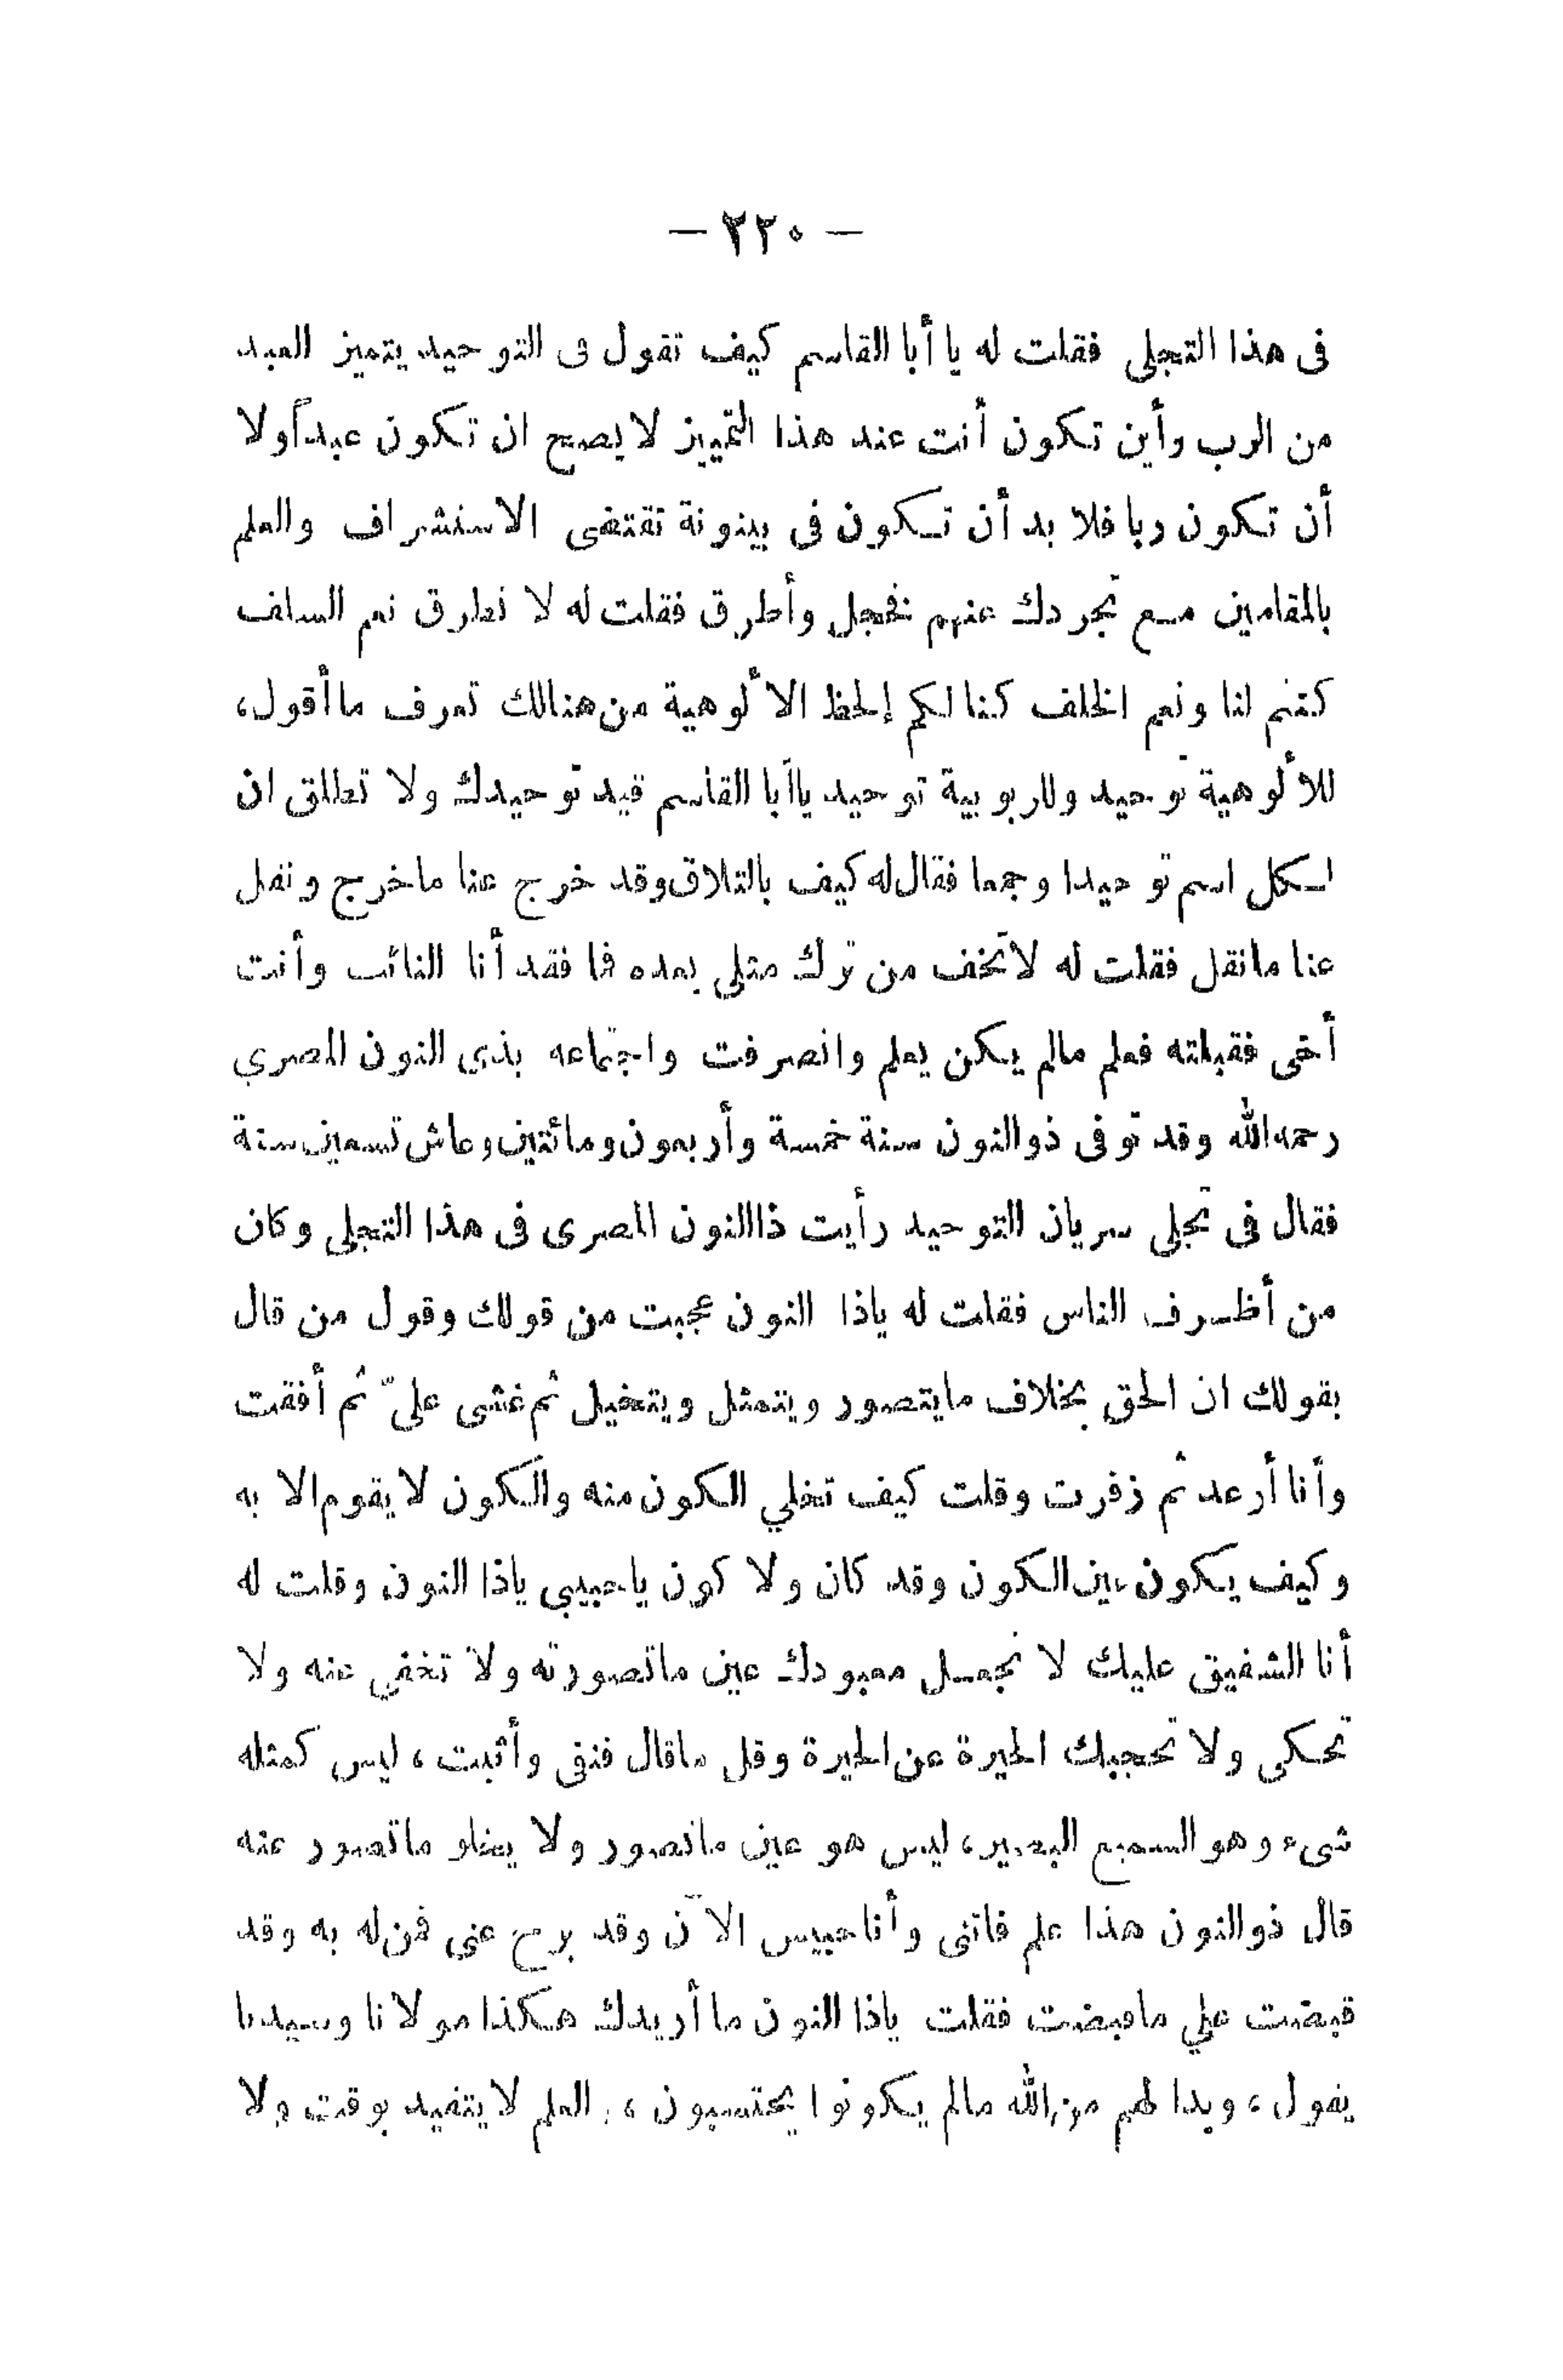 — ٢٢٠ —
فى هذا التجلى فقلت له يا أبا القاسم كيف تقول فى التوحيد يتميز العبد
من الرب وأين تكون أنت عند هذا التمييز لا يصح ان تكون عبداً ولا
أن تكون ربا فلا بد أن تكون فى بينونة تقتضى الاستشراف والعلم
بالمقامين مع تجردك عنهم فخجل وأطرق فقلت له لا تطرق نعم السلف
كنتم لنا ونعم الخلف كنا لكم إلحظ الألوهية من هنالك تعرف ما أقول،
للألوهية توحيد وللربوبية توحيد ياأبا القاسم قيد توحيدك ولا تطلق ان
لكل اسم توحيدا وجمعا فقال له كيف بالتلاق وقد خرج عنا ماخرج ونقل
عنا مانقل فقلت له لاتخف من ترك مثلى بعده فما فقد أنا النائب وأنت
أخى فقبلته فعلم مالم يكن يعلم وانصرفت واجتماعه بذى النون المصري
رحمه الله وقد توفى ذوالنون سنة خمسة وأربعون ومائتين وعاش تسعين سنة
فقال فى تجلى سريان التوحيد رأيت ذاالنون المصرى فى هذا التجلى وكان
من أظرف الناس فقلت له ياذا النون عجبت من قولك وقول من قال
بقولك ان الحق بخلاف مايتصور ويتمثل ويتخيل ثم غشى علىّ ثم أفقت
وأنا أرعد ثم زفرت وقلت كيف تخلي الكون منه والكون لايقوم الا به
وكيف يكون عين الكون وقد كان ولا كون ياحبيبي ياذا النون وقلت له
أنا الشفيق عليك لا تجعل معبودك عين ماتصورته ولا تخفي عنه ولا
تحكى ولا تحجبك الحيرة عن الحيرة وقل ماقال فنفى وأثبت، ليس كمثله
شىء وهو السميع البصير، ليس هو عين ماتصور ولا يخلو ماتصور عنه
قال ذوالنون هذا علم فاتنى وأنا حبيس الآن وقد برح عنى فمن له به وقد
قبضت علي ماقبضت فقلت ياذا النون ما أريدك هكذا مولانا وسيدنا
يقول، وبدا لهم من الله مالم يكونوا يحتسبون، العلم لايتقيد بوقت ولا